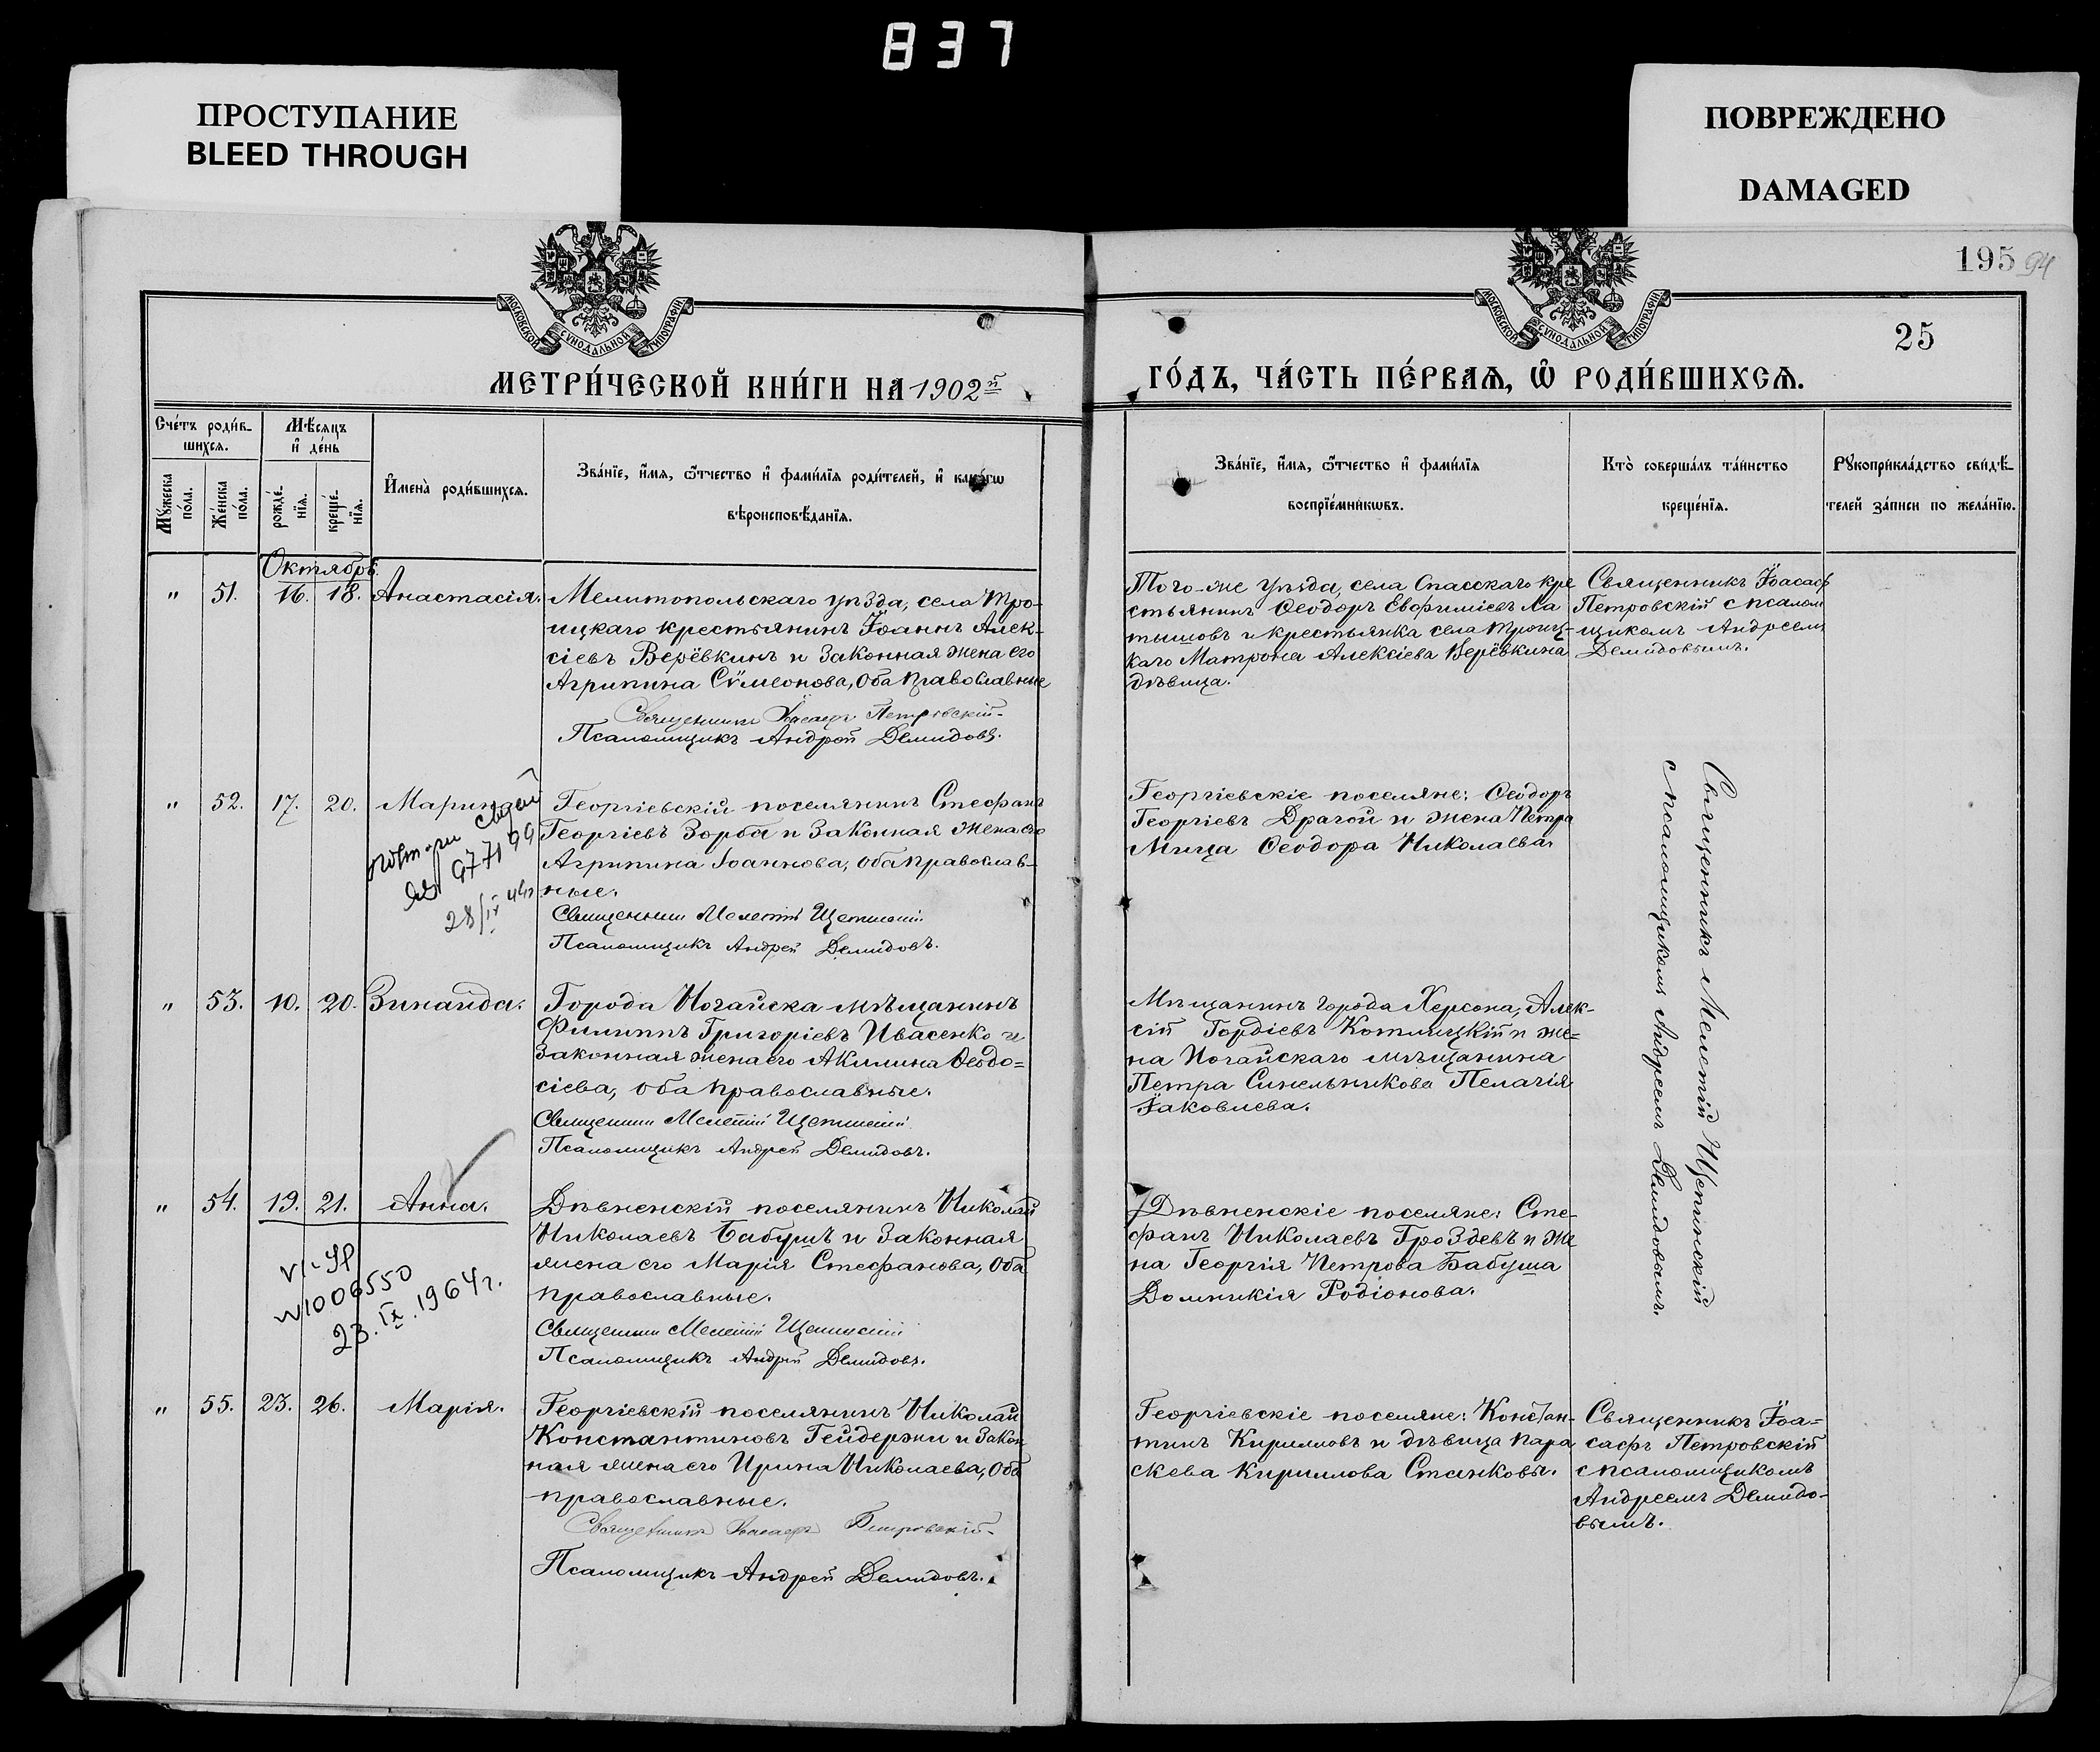 837
ПРОСТУПАНИЕ
BLEED THROUGH
ПОВРЕЖДЕНО
DAMAGED
МОСКОВСКОЙ СѴНОДАЛЬНОЙ ТИПОГРАФІИ
МОСКОВСКОЙ СѴНОДАЛЬНОЙ ТИПОГРАФІИ
195 94
25
МЕТРИ́ЧЕСКОЙ КНИ́ГИ НА 1902й
ГО́ДЪ, ЧА́СТЬ ПЕ́РВАѦ, Ѡ҆ РОДИ́ВШИХСѦ.
Сче́тъ роди́в-
шихсѧ.
Мѣ́сяцъ
и҆ де́нь
Мꙋ́жеска
по́ла.
Же́нска
по́ла.
рожде́-
нїѧ.
креще́-
нїѧ.
И҆мена̀ роди́вшихсѧ.
Зва́нїе, и҆́мѧ, ѻ҆́тчество и҆ фами́лїѧ роди́телей, и҆ како́гѡ
вѣроисповѣ́данїѧ.
Зва́нїе, и҆́мѧ, ѻ҆́тчество и҆ фами́лїѧ
воспрїе́мникѡвъ.
Кто̀ соверша́лъ та́инство
креще́нїѧ.
Рꙋкоприкла́дство свидѣ́-
телей за́писи по жела́нїю.
Октябрь.
" 51. 16. 18. Анастасія.
Мелитопольскаго уѣзда, села Тро-
ицкаго крестьянинъ Іоаннъ Алек-
сіевъ Верёвкинъ и законная жена его
Агрипина Сѵмеонова, оба православные
Священникъ Іоасафъ Петровскій
Псаломщикъ Андрей Демидовъ.
Того-же уѣзда, села Спасскаго кре
стьянинъ Ѳеодоръ Евфиміевъ Ла
тышовъ и крестьянка села Троиц-
каго Матрона Алексіева Верёвкина
дѣвица.
Священникъ Іоасаф
Петровскій с псалом
щикомъ Андреемъ
Демидовымъ.
" 52. 17. 20. Марина
повторн свид
97719
28/IX 44г
Георгіевскій поселянинъ Стефанъ
Георгіевъ Зорба и законная жена его
Агрипина Іоаннова, оба православ-
ные.
Священникъ Мелетій Щепинскій
Псаломщикъ Андрей Демидовъ.
Георгіевскіе поселяне: Ѳеодоръ
Георгіевъ Драгой и жена Петра
Мица Ѳеодора Николаева.
Священникъ Мелетій Щепинскій
с псаломщикомъ Андреемъ Демидовымъ.
" 53. 10. 20. Зинаида.
Города Ногайска мѣщанинъ
Филиппъ Григоріевъ Ивасенко и
законная жена его Акилина Ѳеодо=
сіева, оба православные.
Священникъ Мелетій Щепинскій
Псаломщикъ Андрей Демидовъ.
Мѣщанинъ города Херсона, Алек-
сій Гордіевъ Котляцкій и же=
на Ногайскаго мѣщанина
Петра Синельникова Пелагія
Іаковлева.
" 54. 19. 21. Анна.
N1006550
23.IX.1964г.
Дѣвненскій поселянинъ Николай
Николаевъ Бабушъ и законная
жена его Марія Стефанова, оба
православные.
Священникъ Мелетій Щепинскій
Псаломщикъ Андрей Демидовъ.
Дѣвненскіе поселяне: Сте-
фанъ Николаевъ Гроздевъ и же
на Георгія Петрова Бабуша
Домникія Родіонова.
" 55. 23. 26. Марія.
Георгіевскій поселянинъ Николай
Константиновъ Гейдержи и закон
ная жена его Ирина Николаева, оба
православные.
Священникъ Іоасафъ Петровскій
Псаломщикъ Андрей Демидовъ.
Георгіевскіе поселяне: Констан-
тинъ Кирилловъ и дѣвица Пара
скева Кириллова Станковы.
Священникъ Іоа=
сафъ Петровскій
с псаломщикомъ
Андреемъ Демидо-
вымъ.